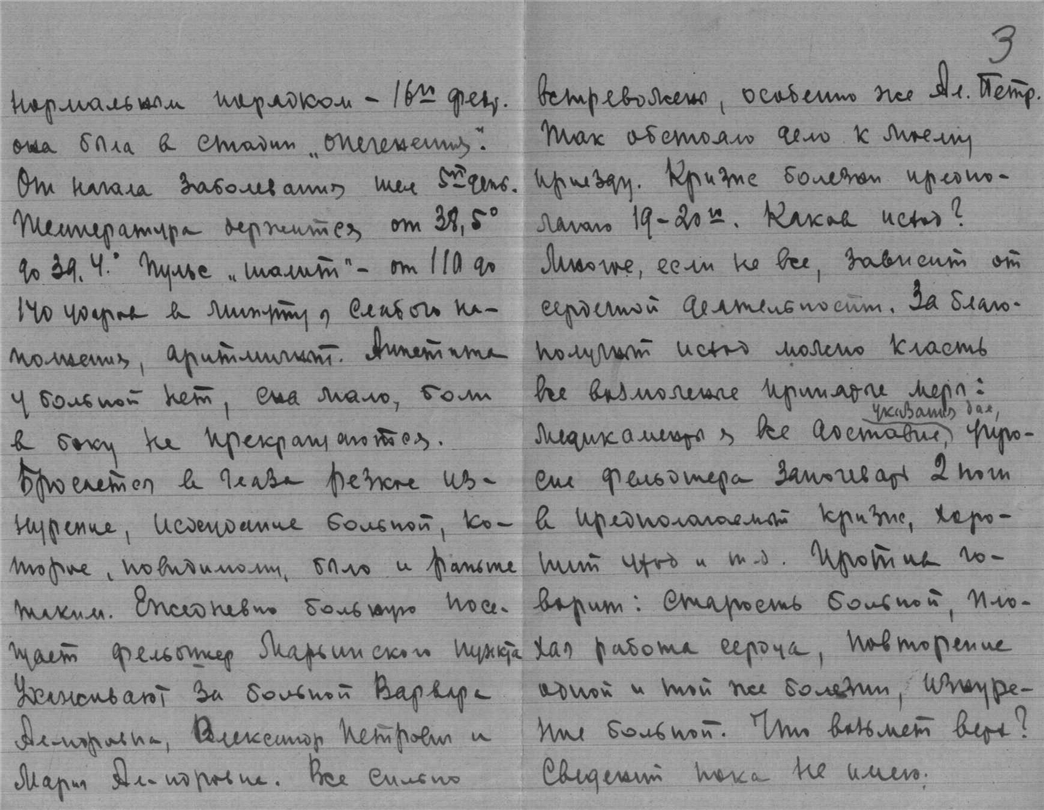 3
нормальным порядком – 16го февр.
она была в стадии „опеченения".
От начала заболевания шел 5ый день.
Температура держится от 38,5°
до 39.4.° Пульс „шалит" – от 110 до
140 ударов в минуту, слабого на-
полнения, аритмичный. Аппетита
у больной нет, сна мало, боли
в боку не прекращаются.
Бросается в глаза резкое из-
нурение, исхудание больной, ко-
торое, повидимому, было и раньше
таким. Ежедневно больную посе-
щает фельдшер Марьинского пункта
Ухаживают за больной Варвара
Александр Петрович и
Мария Все сильно
встревожены, особенно же Ал. Петр.
Так обстояло дело к моему
приезду. Кризис болезни предпо-
лагаю 19–20го. Каков исход?
Многое, если не все, зависит от
сердечной деятельности. За благо-
получный исход можно класть
все возможные принятые меры:
указания дал,
медикаменты все доставил, упро-
сил фельдшера заночевать 2 ночи
в предполагаемый кризис, хоро-
ший уход и т.д. Против го-
ворит: старость больной, пло-
хая работа сердца, повторение
одной и той же болезни, изнуре-
ние больной. Что возьмет верх?
Сведений пока не имею.